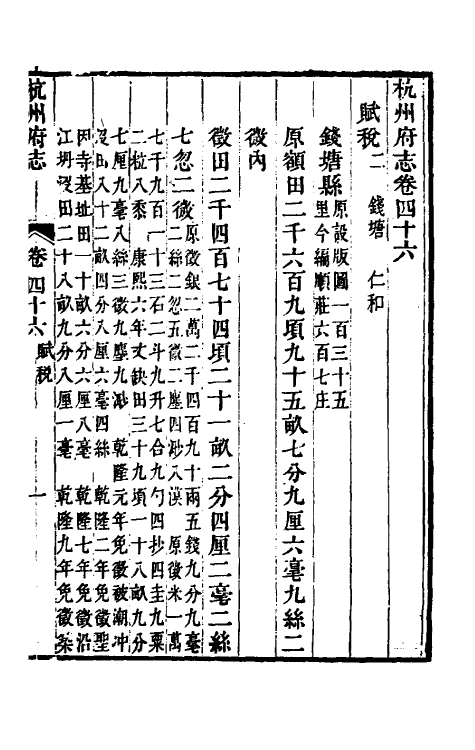 杭州府志卷四十六
賦稅二　錢塘　仁和
錢塘縣原設版圖一百三十五
里今編順莊六百七庄
原額田二千六百九頃九十五畝七分九厘六毫九絲二
微內
徵田二千四百七十四頃二十一畝二分四厘二毫二絲
七忽二微原徵銀二萬二千四百九十兩五錢九分九毫
二絲二忽五微二塵四渺八漠　原徵米一萬
七千九百一十三石二斗九升七合九勺四抄四圭九粟
二粒八黍　康熙六年丈缺田三十九頃一十八畝九分
七厘九毫八絲三微九塵九渺　乾隆元年免徵被潮冲
沒田八十二畝四分八厘六毫四絲　乾隆二年免徵聖
因寺基址田一十畝六分六厘八毫　乾隆七年免徵沿
江坍沒田二十八畝九分八厘一毫　乾隆九年免徵
杭州府志
卷四十六　賦稅
一